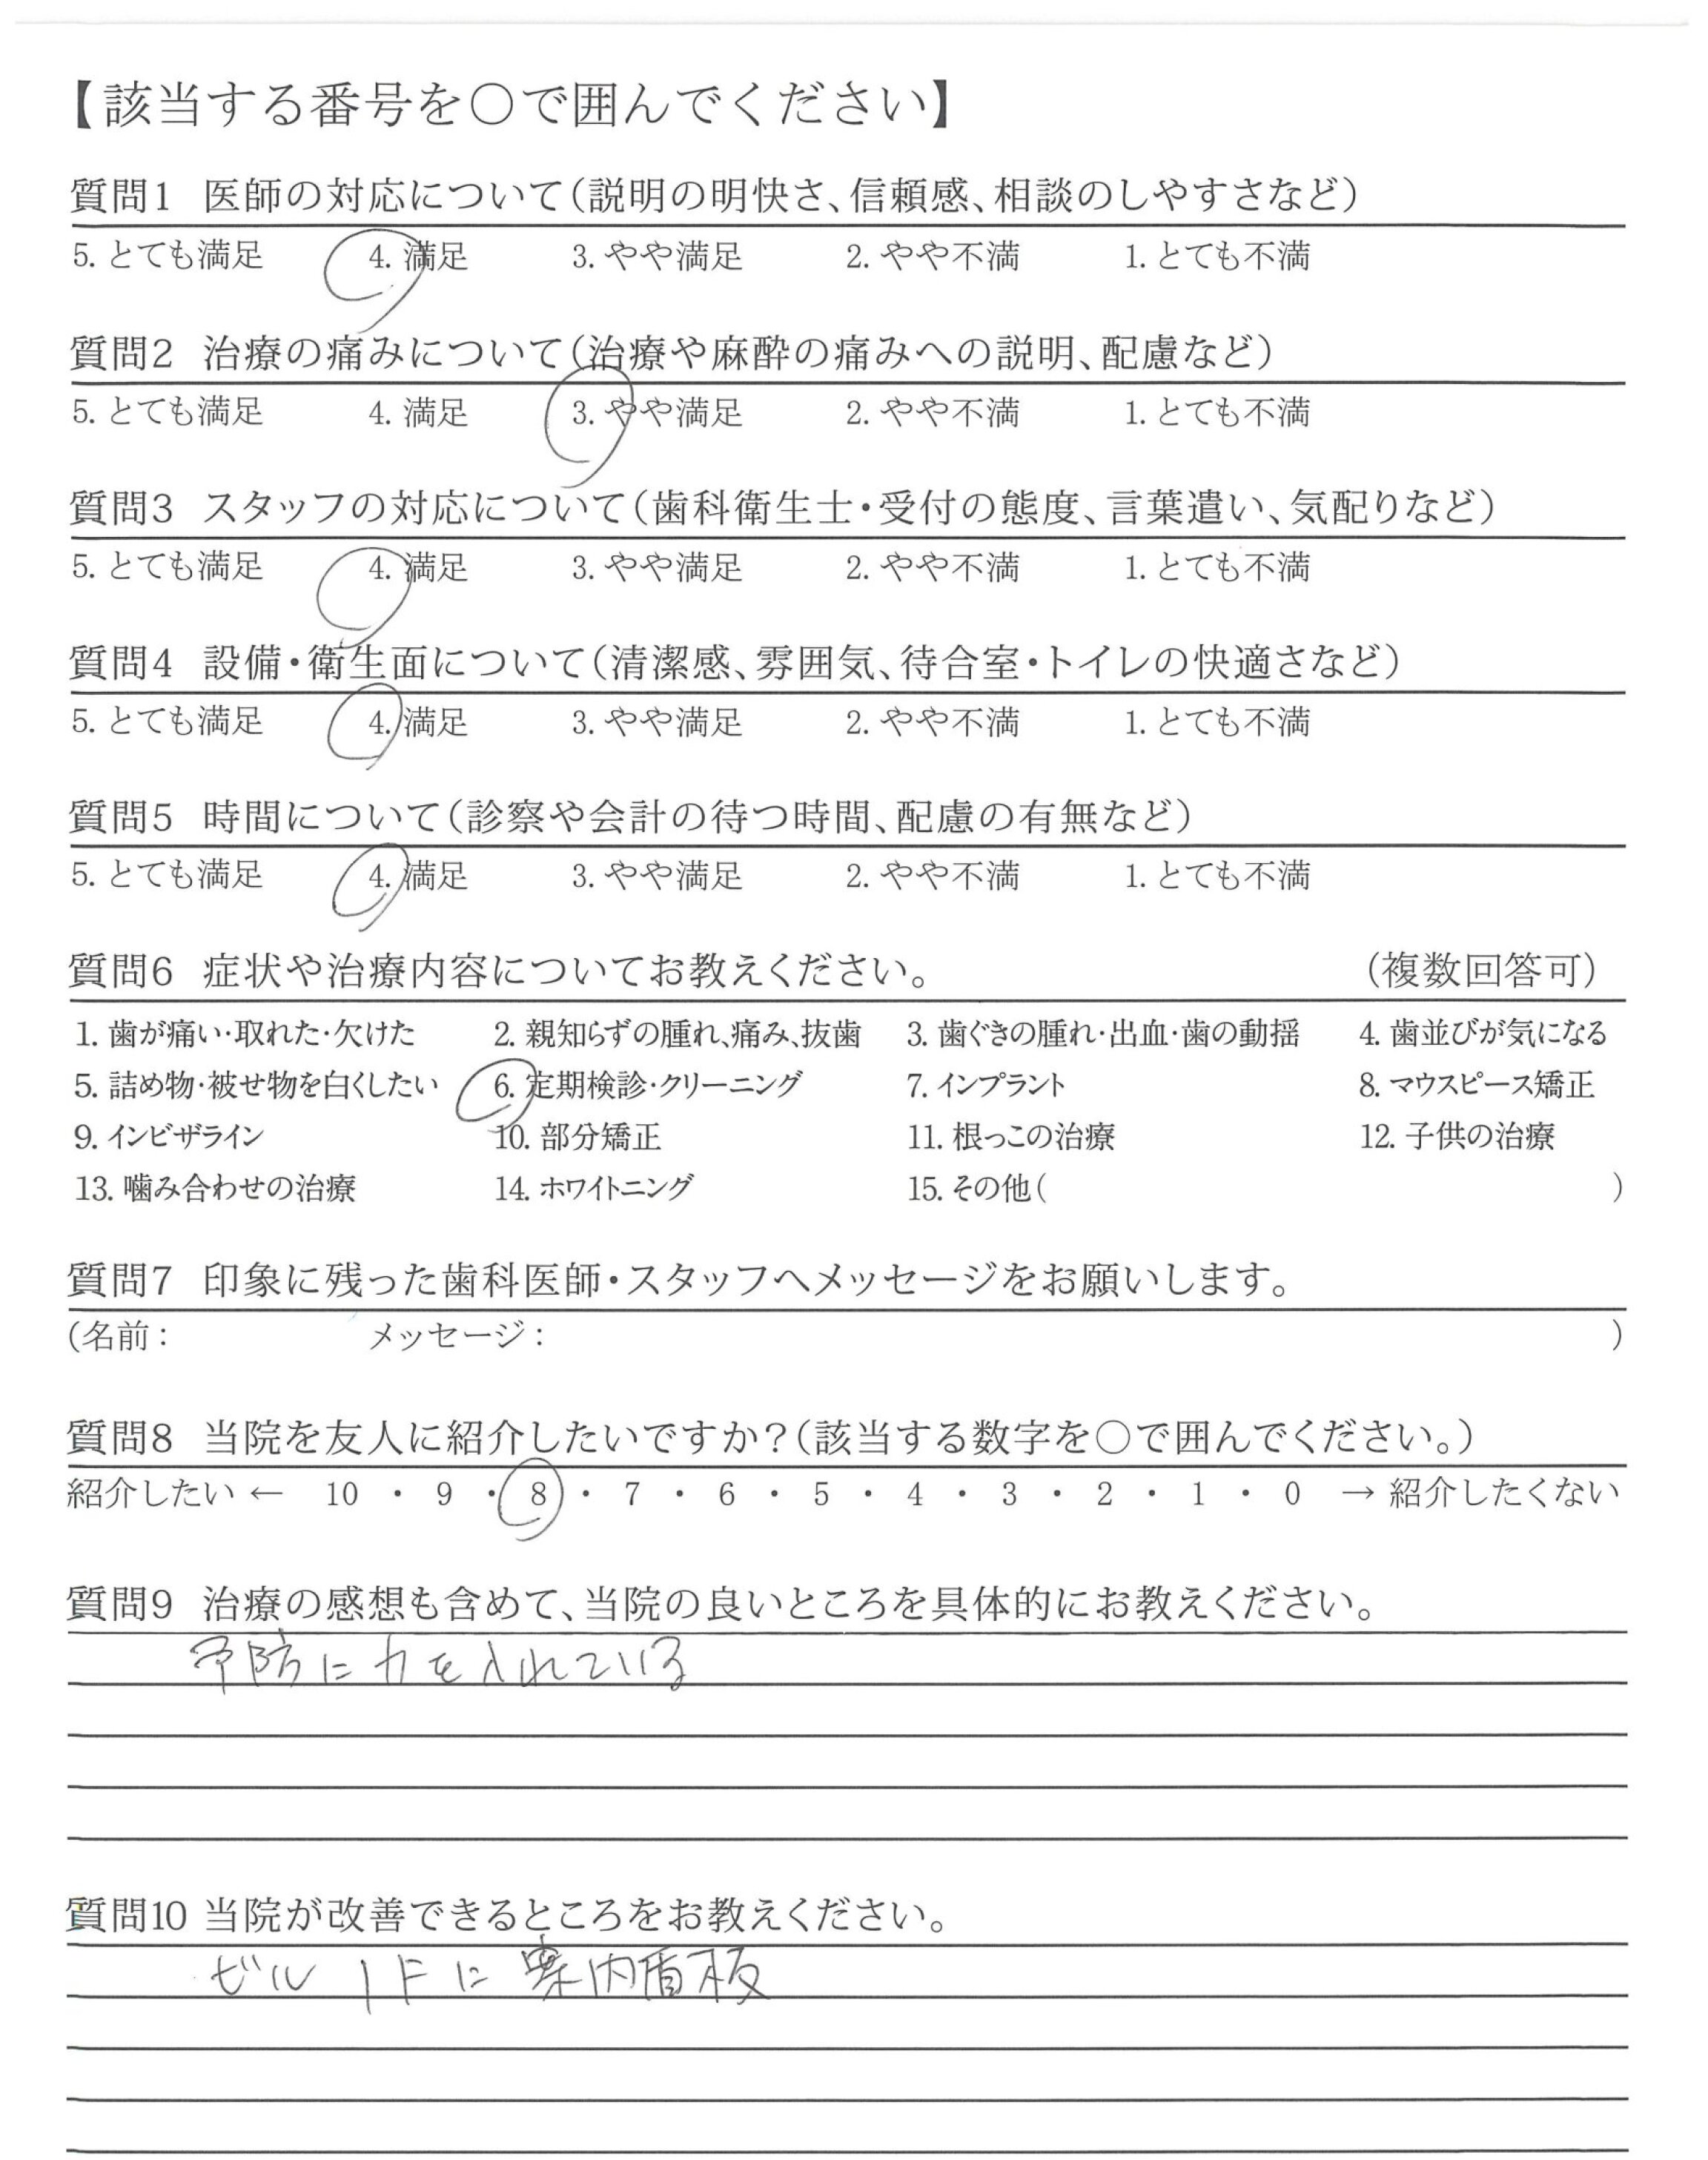 【該当する番号を○で囲んでください】
質問1 医師の対応について(説明の明快さ、信頼感、相談のしやすさなど)
5. とても満足 4. 満足 3. やや満足 2. やや不満 1. とても不満
質問2 治療の痛みについて(治療や麻酔の痛みへの説明、配慮など)
5. とても満足 4. 満足 3. やや満足 2. やや不満 1. とても不満
質問3 スタッフの対応について(歯科衛生士・受付の態度、言葉遣い、気配りなど)
5. とても満足 4. 満足 3. やや満足 2. やや不満 1. とても不満
質問4 設備・衛生面について(清潔感、雰囲気、待合室・トイレの快適さなど)
5. とても満足 4. 満足 3. やや満足 2. やや不満 1. とても不満
質問5 時間について(診察や会計の待つ時間、配慮の有無など)
5. とても満足 4. 満足 3. やや満足 2. やや不満 1. とても不満
質問6 症状や治療内容についてお教えください。 (複数回答可)
1. 歯が痛い・取れた・欠けた 2. 親知らずの腫れ、痛み、抜歯 3. 歯ぐきの腫れ・出血・歯の動揺 4. 歯並びが気になる
5. 詰め物・被せ物を白くしたい 6. 定期検診・クリーニング 7. インプラント 8. マウスピース矯正
9. インビザライン 10. 部分矯正 11. 根っこの治療 12. 子供の治療
13. 噛み合わせの治療 14. ホワイトニング 15. その他( )
質問7 印象に残った歯科医師・スタッフへメッセージをお願いします。
(名前: メッセージ: )
質問8 当院を友人に紹介したいですか?(該当する数字を○で囲んでください。)
紹介したい ← 10 ・ 9 ・ 8 ・ 7 ・ 6 ・ 5 ・ 4 ・ 3 ・ 2 ・ 1 ・ 0 → 紹介したくない
質問9 治療の感想も含めて、当院の良いところを具体的にお教えください。
予防に力を入れている
質問10 当院が改善できるところをお教えください。
ビル1Fに案内看板